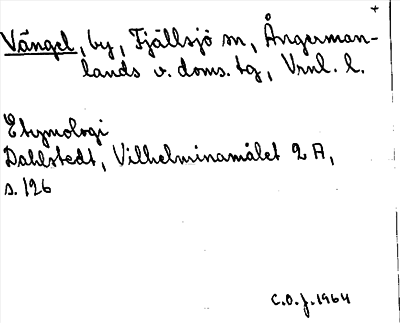 Vängel, by, Fjällsjö sn, Ångerman-
lands v. doms. tg, Vrnl. l.
Etymologi
Dahlstedt, Vilhelminamålet 2 A,
s. 126
C.O.J. 1964